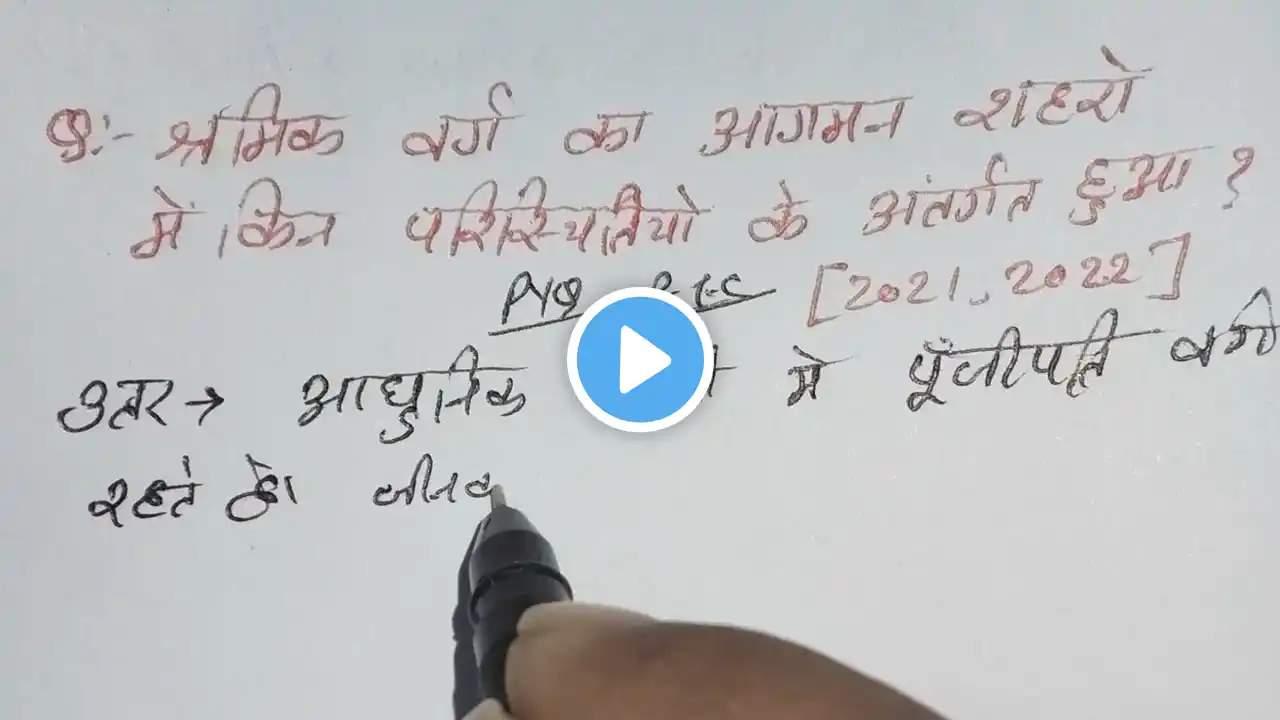 Q:- श्रमिक वर्ग का आगमन शहरो
में किन परिस्थितियो के अंतर्गत हुआ ?
PYQ [2021, 2022]
उतर → आधुनिक मे पूँजीपति वर्ग
रहते है।